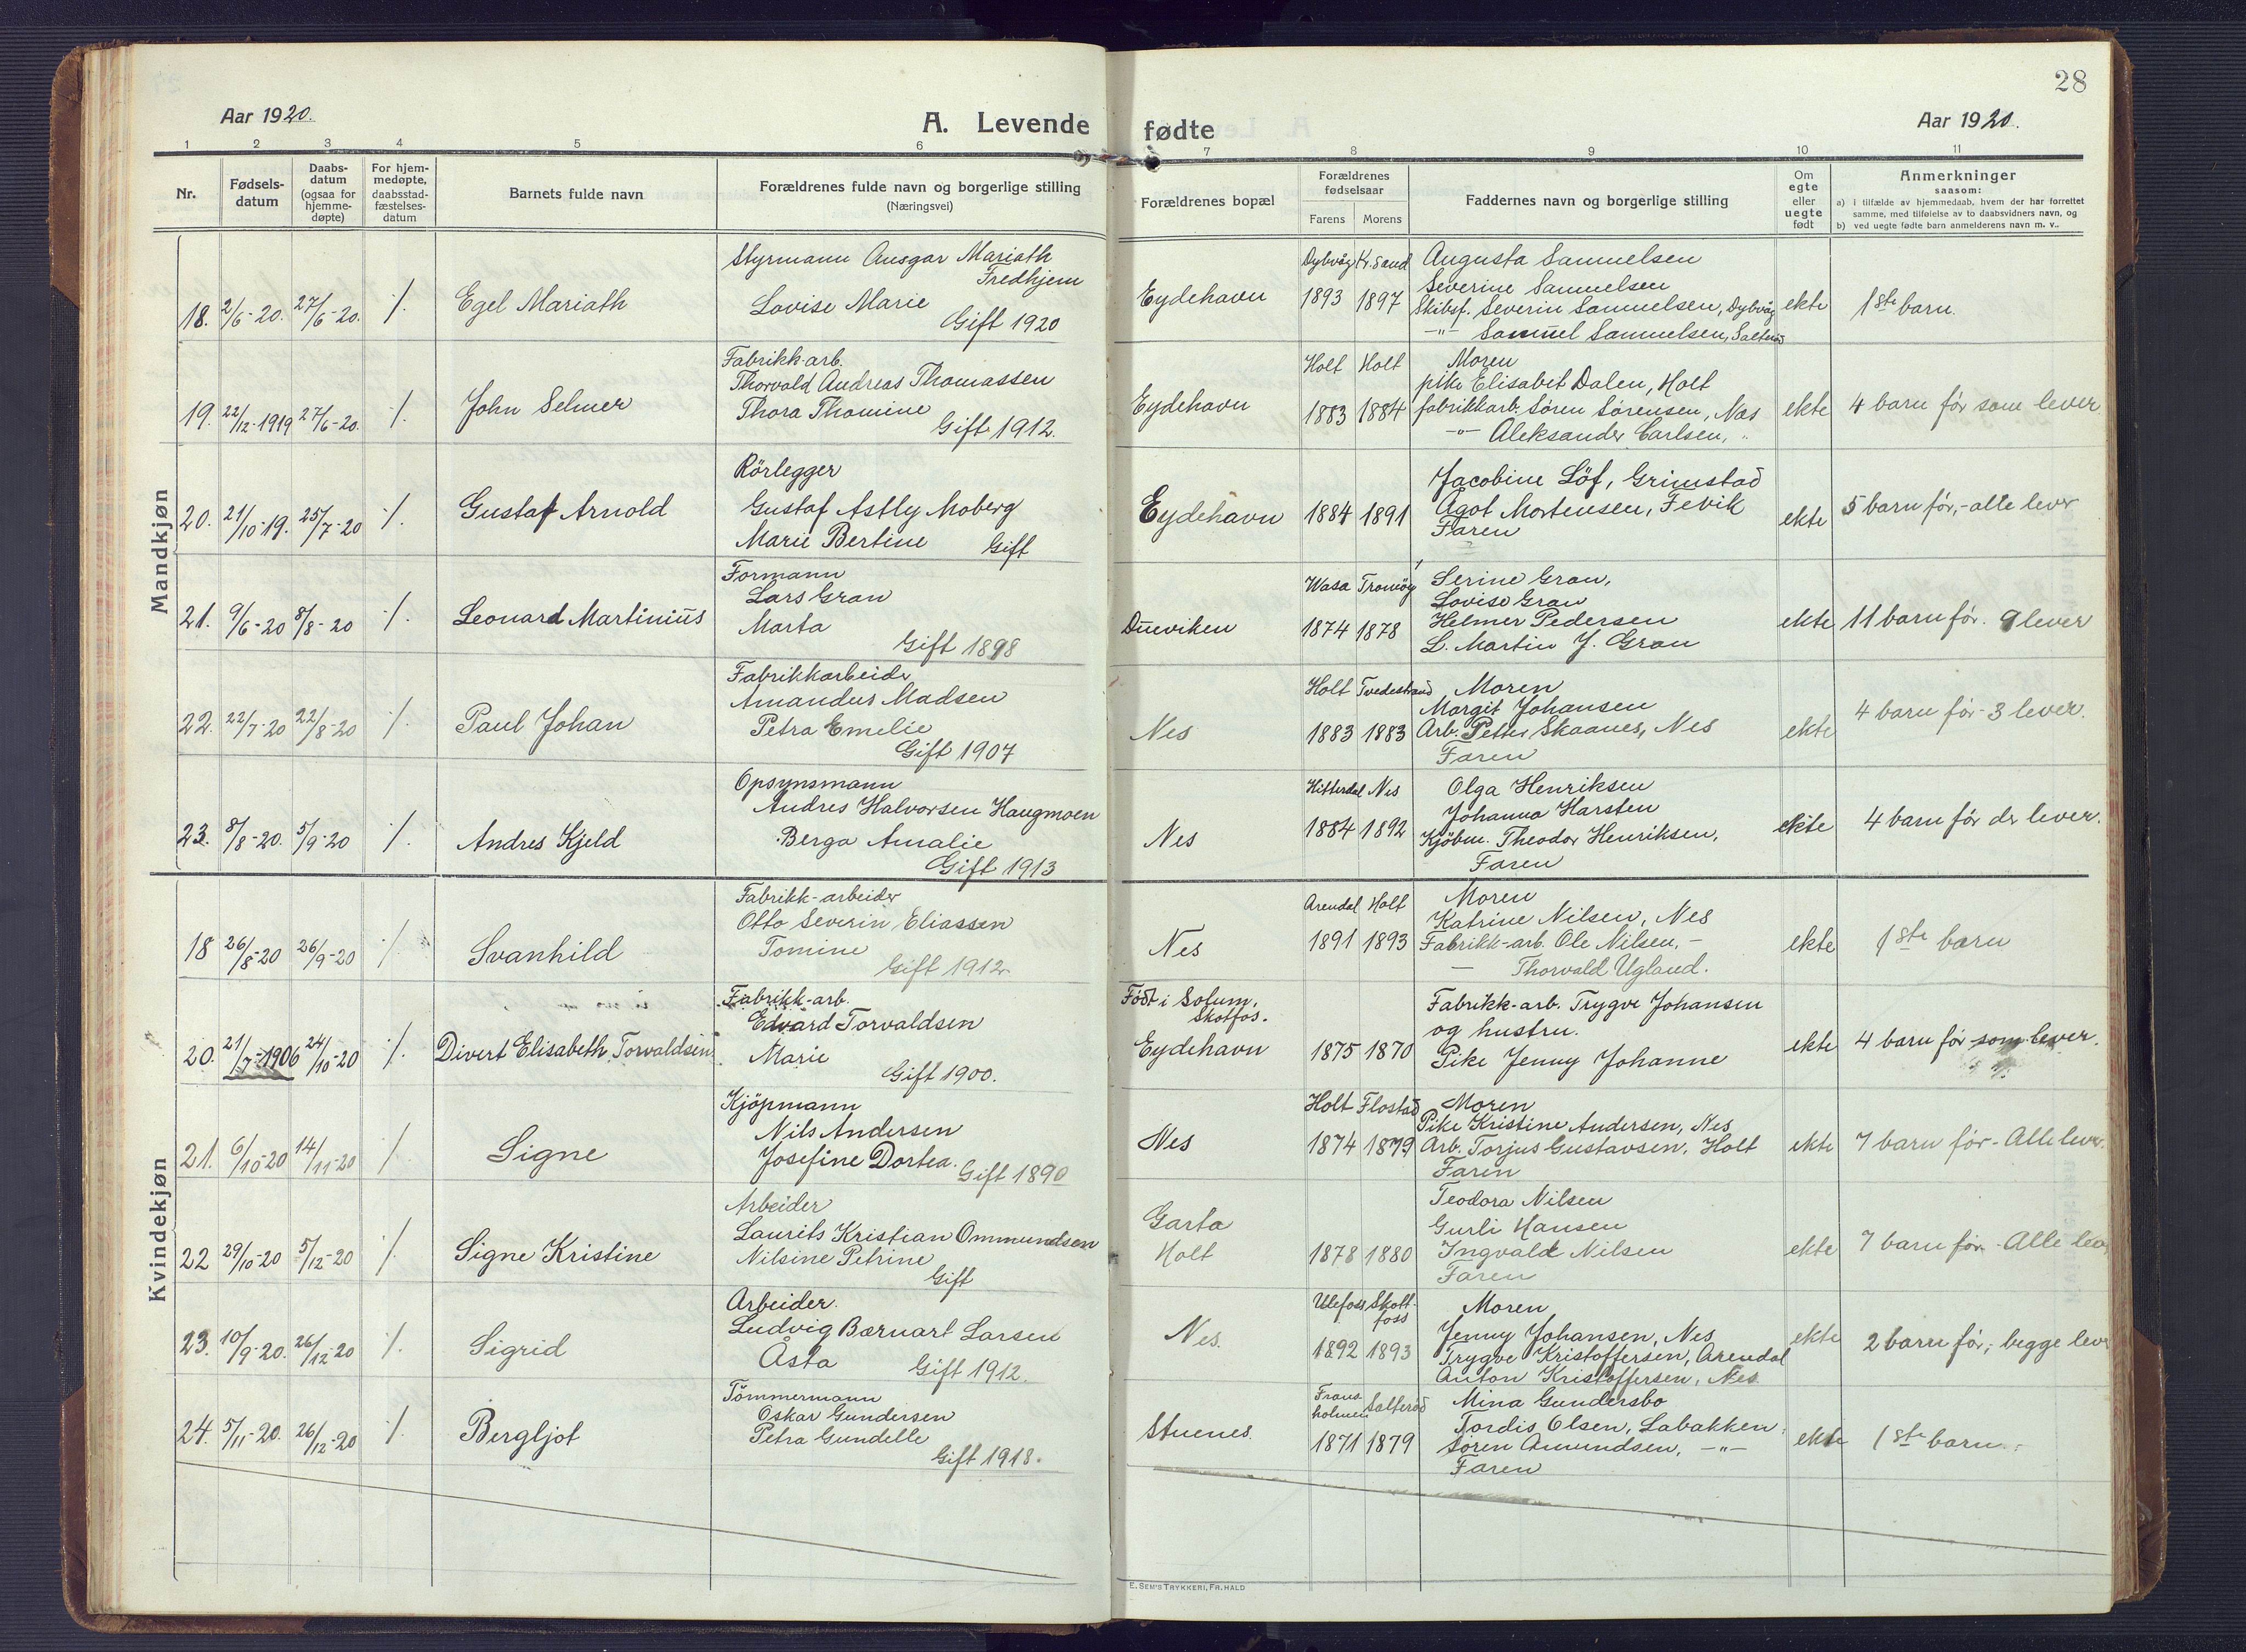 28
Aar 1920.
A. Levende fødte
Aar 1920.
1 2 3 4 5 6 7 8 9 10 11
Nr.
Fødsels-
datum
Daabs-
datum
(ogsaa for
hjemme-
døpte)
For hjem-
medøpte,
daabsstad-
fæstelses-
datum
Barnets fulde navn
Forældrenes fulde navn og borgerlige stilling
(Næringsvei)
Forældrenes bopæl
Forældrenes
fødselsaar
Farens Morens
Faddernes navn og borgerlige stilling
Om
egte
eller
uegte
født
Anmerkninger
saasom:
a) i tilfælde av hjemmedaab, hvem der har forrettet
samme, med tilføielse av to daabsvidners navn, og
b) ved uegte fødte barn anmelderens navn m. v..
Mandkjøn
18. 2/6-20. 27/6-20. ·/. Egel Mariath
Styrmann Ansgar Mariath
Fredhjem
Lovise Marie
Gift 1920
Eydehavn
Dybvåg Kr.sand
1893 1897
Augusta Samuelsen
Severine Samuelsen
Skibsf. Severin Samuelsen, Dybvåg
-"- Samuel Samuelsen, Salterød
ekte
1ste barn.
19. 22/12-1919 27/6-20. ·/. John Selmer
Fabrikk-arb.
Thorvald Andreas Thomassen
Thora Thomine
Gift 1912.
Eydehavn
Holt Holt
1883 1884
Moren
pike Elisabet Dalen, Holt
fabrikkarb. Søren Sørensen, Nes
-"- Aleksander Carlsen, "
ekte
4 barn før som lever
20. 21/10-19. 25/7-20 ·/. Gustaf Arnold
Rörlegger
Gustaf Astly Moberg
Marie Bertine Gift
Eydehavn
1884 1891
Jacobine Löf, Grimstad
Agot Mortensen, Fevik
Faren
ekte
5 barn før,-alle lever
21. 9/6-20 8/8-20 ·/. Leonard Martinius
Formann
Lars Gran
Marta
Gift 1898
Dueviken
Wasa Tromöy
1874 1878
Serine Gran,
Lovise Gran
Helmer Pedersen
L. Martin J. Gran
ekte
11 barn før. 9 lever
22. 22/7-20 22/8-20 ·/. Paul Johan
Fabrikkarbeider
Amandus Madsen
Petra Emelie
Gift 1907
Nes
Holt Tvedestrand
1883 1883
Moren
Margit Johansen
Arb. Petter Skaanes, Nes
Faren
ekte
4 barn før - 3 lever.
23. 8/8-20. 5/9-20 ·/. Andres Kjeld
Opsynsmann
Andres Halvorsen Haugmoen
Berga Amalie
Gift 1913
Nes
Hitterdal Nes
1884 1892
Olga Henriksen
Johanna Harsten
Kjöbm. Theodor Henriksen,
Faren
ekte
4 barn før der lever.
Kvindekjøn
18 26/8-20 26/9-20 ·/. Svanhild
Fabrikk-arbeider
Otto Severin Eliassen
Tomine
Gift 1912.
Nes
Arendal Holt
1891 1893
Moren
Katrine Nilsen, Nes
Fabrikk-arb. Ole Nilsen, -
- Thorvald Ugland.
ekte
1ste barn
20. 21/7-1906 24/10-20 ·/. Divert Elisabeth Torvaldsen.
Fabrikk-arb.
Edvard Torvaldsen
Marie
Gift 1900.
Født i Solum,
Skotfos.
Eydehavn
1875 1870
Fabrikk-arb. Trygve Johansen
og hustru.
Pike Jenny Johanne
ekte
4 barn før som lever.
21. 6/10-20 14/11-20 ·/. Signe
Kjöpmann
Nils Andersen
Josefine Dortea. Gift 1890
Nes
Holt Flostad
1874 1879
Moren
Pike Kristine Andersen, Nes
Arb. Torjus Gustavsen, Holt
Faren
ekte
7 barn før - Alle lever.
22 29/10-20 5/12-20 ·/. Signe Kristine
Arbeider
Laurits Kristian Ommundsen
Nilsine Petrine
Gift
Garta
Holt
1878 1880
Teodora Nilsen
Gurli Hansen
Ingvald Nilsen
Faren
ekte
7 barn før. - Alle lever
23. 10/9-20. 26/12-20 ·/. Sigrid
Arbeider.
Ludvig Bærnart Larsen
Åsta Gift 1912.
Nes.
Ulefoss Skott-
foss
1892 1893
Moren
Jenny Johansen, Nes
Trygve Kristoffersen, Arendal
Anton Kristoffersen, Nes
ekte
2 barn før,- begge lever
24. 5/11-20. 26/12-20 ·/. Bergljot
Tömmermann
Oskar Gundersen
Petra Gundelle
Gift 1918.
Stuenes.
Frans-
holmen Salteröd
1871 1879
Mina Gundersbo
Tordis Olsen, Labakken,
Sören Amundsen, -"-
Faren
ekte
1ste barn.
E. SEM'S TRYKKERI, FR.HALD